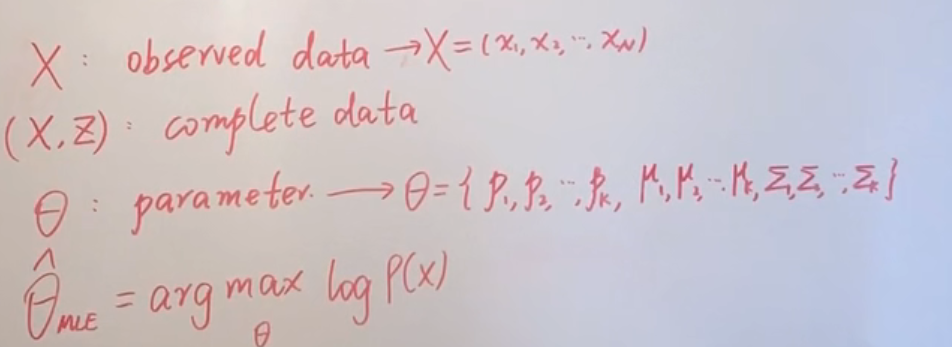 X : observed data → X = (x₁, x₂, ..., x_N)
(X, Z) : complete data
θ : parameter. → θ = { p₁, p₂, ..., p_K, μ₁, μ₂, ... μ_K, Σ₁, Σ₂, ..., Σ_K }
θ̂_MLE = arg max_θ log P(X)